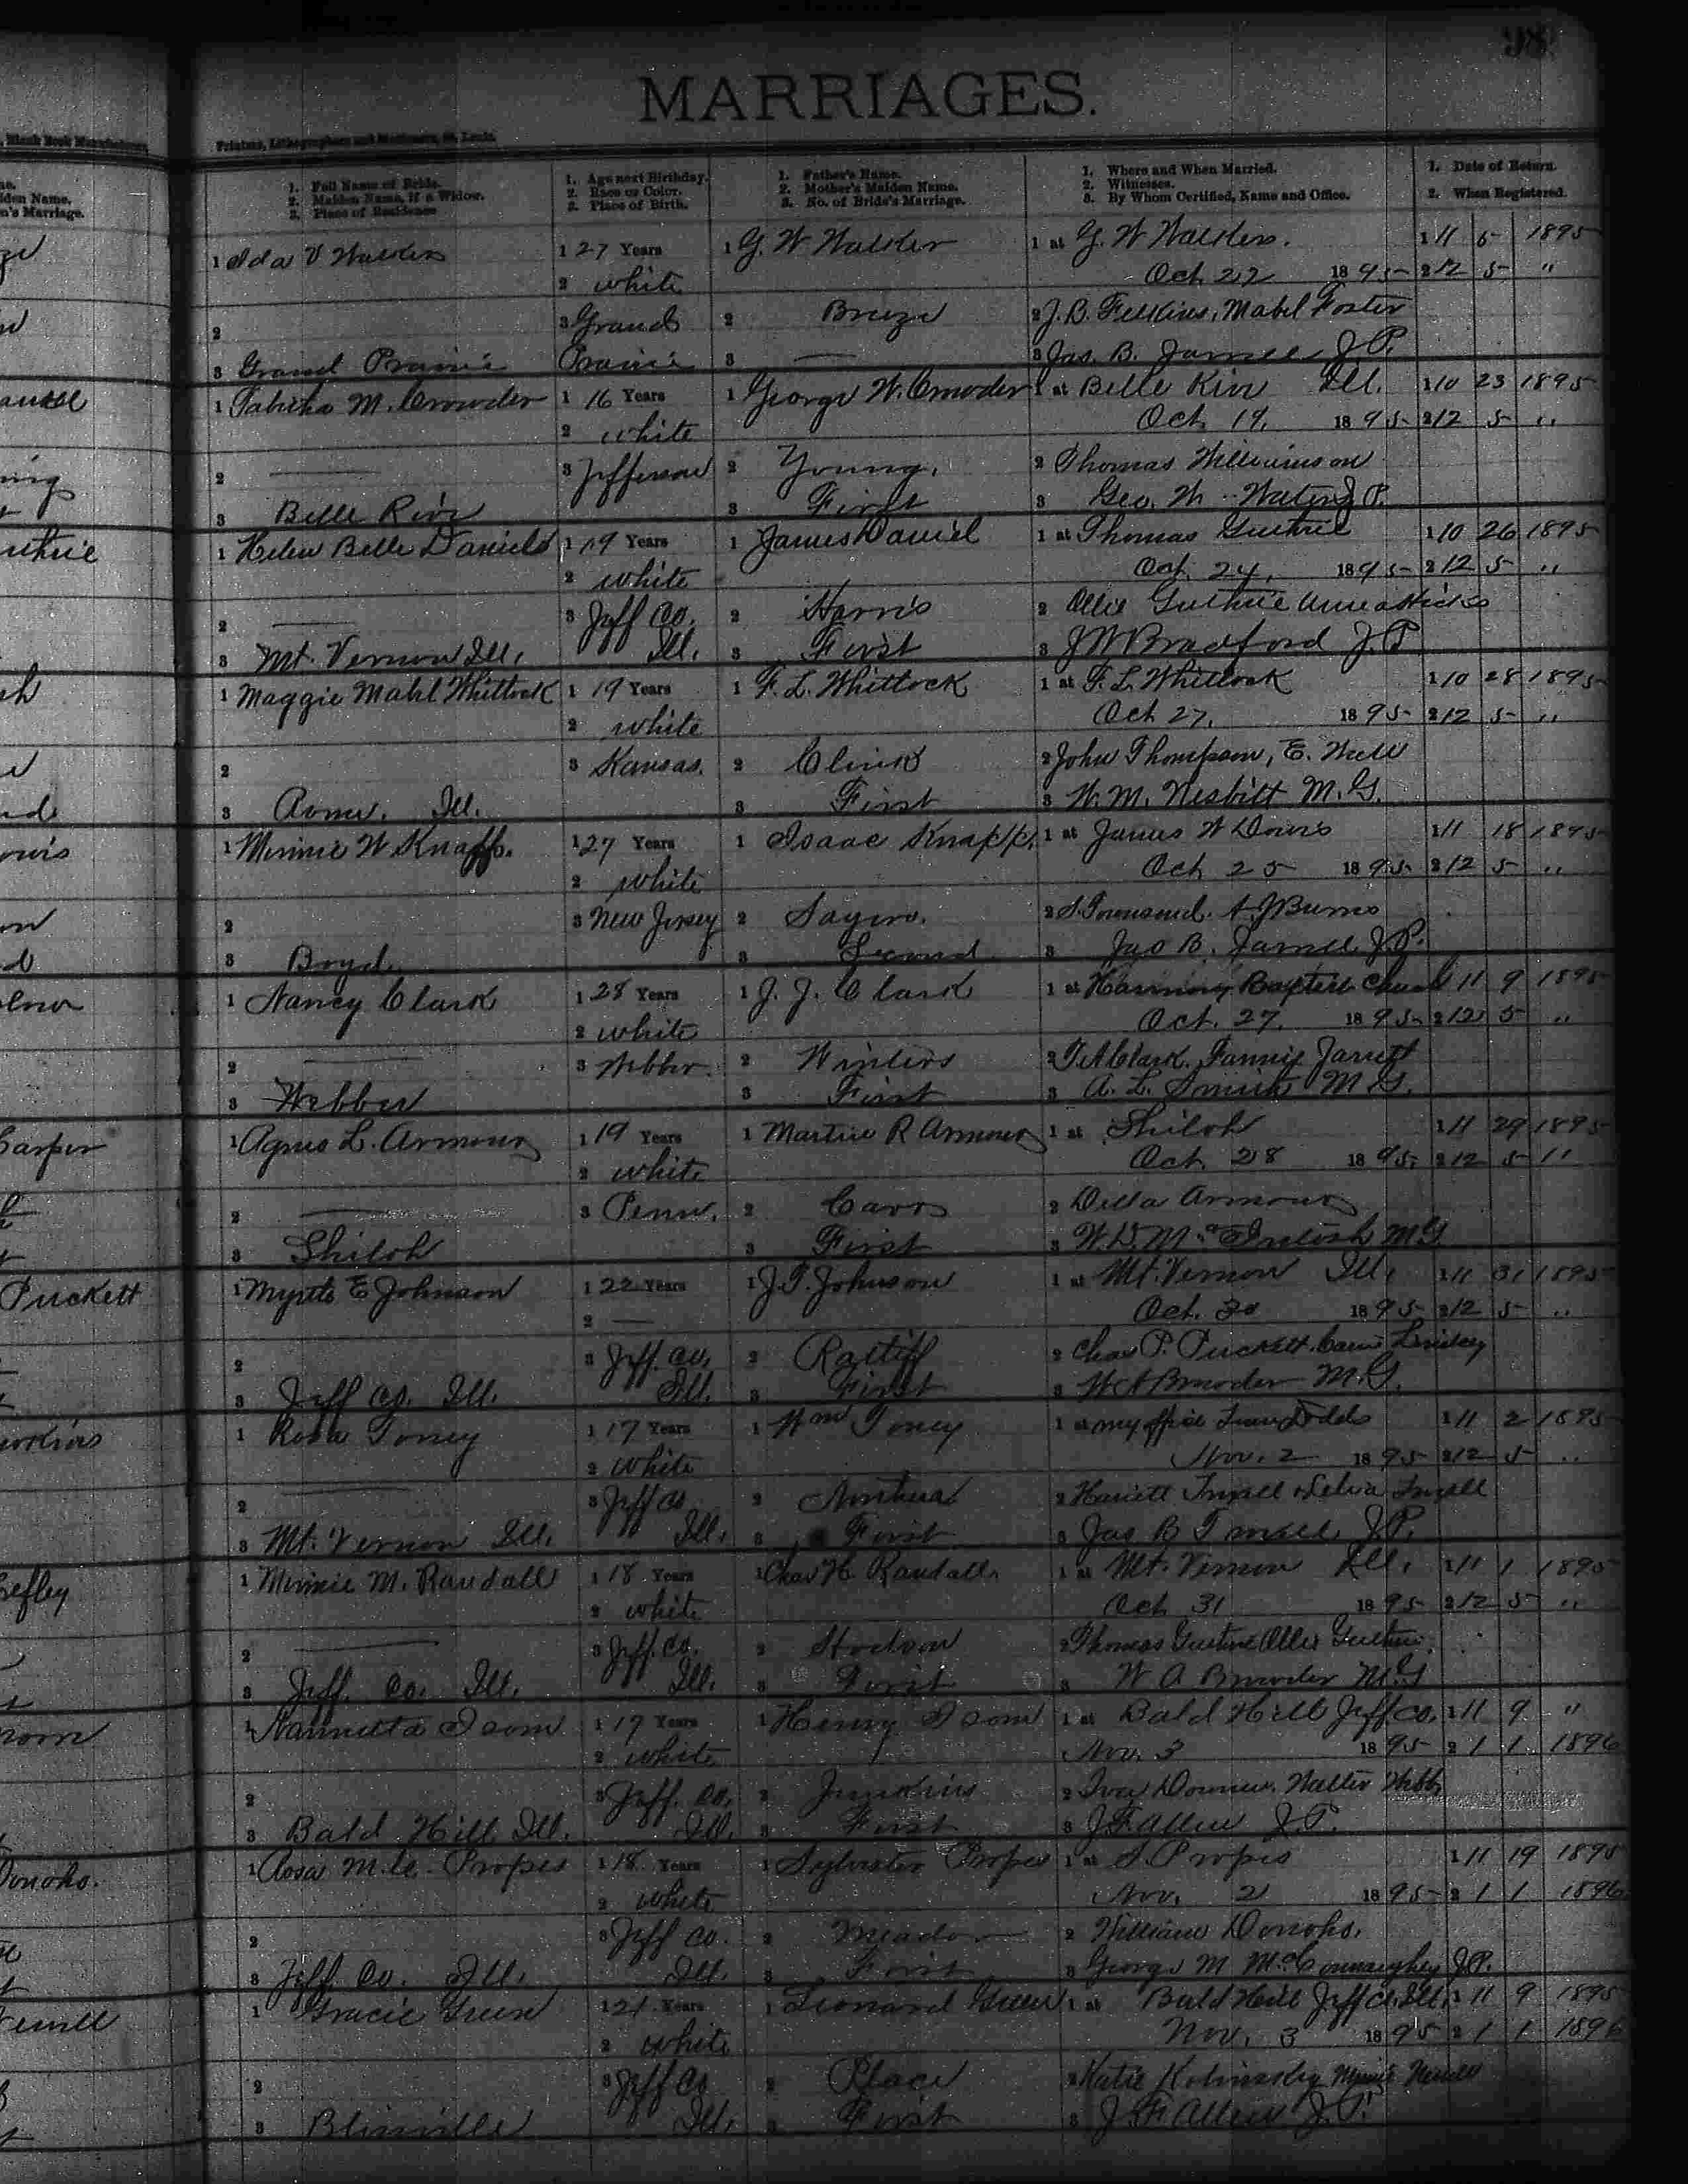 98
MARRIAGES.
Blank Book Manufacturers,
Printers, Lithographers and Stationers, St. Louis.
1. Full Name of Bride.
2. Maiden Name, if a Widow.
3. Place of Residence
1. Age next Birthday.
2. Race or Color.
3. Place of Birth.
1. Father's Name.
2. Mother's Maiden Name.
3. No. of Bride's Marriage.
1. Where and When Married.
2. Witnesses.
3. By Whom Certified, Name and Office.
1. Date of Return.
2. When Registered.
1 Ida V Walker 1 27 Years 1 G. W Walker 1 at G. W Walkers. 1 11 5 1895
2 white Oct 22 1895 2 12 5 "
2 3 Grand 2 2 J. B. Mabel Foster
3 Grand Prairie Prairie 3 — 3 Jas. B. J. P.
1 Tabitha M. Crowder 1 16 Years 1 George W. Crowder 1 at Belle Rive Ill. 1 10 23 1895
2 white Oct 19, 1895 2 12 5 "
2 — 3 Jefferson 2 Young, 2 Thomas Williamson
3 Belle Rive 3 First 3 Geo. W. J. P.
1 Helen Belle Daniels 1 19 Years 1 James Daniel 1 at Thomas Guthrie 1 10 26 1895
2 white Oct. 24, 1895 2 12 5 "
2 — 3 Jeff Co. 2 Harris 2 Ollie Guthrie
3 Mt. Vernon Ill, Ill. 3 First 3 J W Bradford J. P
1 Maggie Mabl Whitlock 1 19 Years 1 F. L. Whitlock 1 at F. L. Whitlock 1 10 28 1895
2 white Oct 27, 1895 2 12 5 "
2 3 Kansas. 2 2 John Thompson, E.
3 Ill. 3 First 3 W. M. Nesbitt M. G.
1 Minnie W Knapp. 1 27 Years 1 Isaac Knapp. 1 at James W Davis 1 11 18 1895
2 white Oct 25 1895 2 12 5 "
2 3 New Jersey 2 2 S. Townsend. A. J Burns
3 Boyd. 3 Second 3 Jas B. J. P.
1 Nancy Clark 1 28 Years 1 J. J. Clark 1 at Harmony Baptist Church 11 9 1895
2 white Oct. 27. 1895 2 12 5 "
2 — 3 Webber. 2 Winters 2 T. A Clark. Fannie Jarrett
3 Webber 3 First 3 A. L. Smith M G.
1 Agnes L. Armour 1 19 Years 1 Martin R Armour 1 at Shiloh 1 11 29 1895
2 white Oct. 28 1895 2 12 5 "
2 — 3 Penn. 2 2 Della Armour
3 Shiloh 3 First 3 W. D. McIntosh M G
1 Myrtle E Johnson 1 22 Years 1 J. T. Johnson 1 at Mt. Vernon Ill, 1 11 31 1895
2 — Oct. 30 1895 2 12 5 "
2 3 Jeff. Co, 2 Ratliff 2 Chas P. Puckett Lindsey
3 Jeff Co. Ill. Ill. 3 First 3 W A Browder M. G.
1 Rosa Toney 1 17 Years 1 Wm Toney 1 at my office Dodds 1 11 2 1895
2 white Nov. 2 1895 2 12 5 "
2 — 3 Jeff Co 2 2 Harriett
3 Mt. Vernon Ill. Ill. 3 First 3 Jas B J. P.
1 Minnie M. Randall 1 18 Years 1 Chas H Randall 1 at Mt. Vernon Ill. 1 11 1 1895
2 white Oct 31 1895 2 12 5 "
2 — 3 Jeff. Co. 2 Hodson 2 Thomas Guthrie Ollie Guthrie
3 Jeff. Co. Ill. Ill. 3 First 3 W A Browder M. G
1 Nannetta Isom 1 17 Years 1 Henry Isom 1 at Bald Hill Jeff Co, 1 11 9 "
2 white Nov. 3 1895 2 1 1 1896
2 3 Jeff. Co, 2 Jenkins 2 Walter Webb
3 Bald Hill Ill. Ill. 3 First 3 J F Allen J. P.
1 Propes 1 18 Years 1 Sylvester Propes 1 at S. Propes 1 11 19 1895
2 white Nov. 2 1895 2 1 1 1896
2 3 Jeff Co. 2 Meador 2 William Donoho.
3 Jeff. Co. Ill. Ill. 3 First 3 George M McConnaughey J. P.
1 Gracie Green 1 21 Years 1 Leonard Green 1 at Bald Hill Jeff Co. Ill. 1 11 9 1895
2 white Nov. 3 1895 2 1 1 1896
2 3 Jeff Co 2 Place 2 Katie Minnie
3 Ill. 3 First 3 J F Allen J. P.